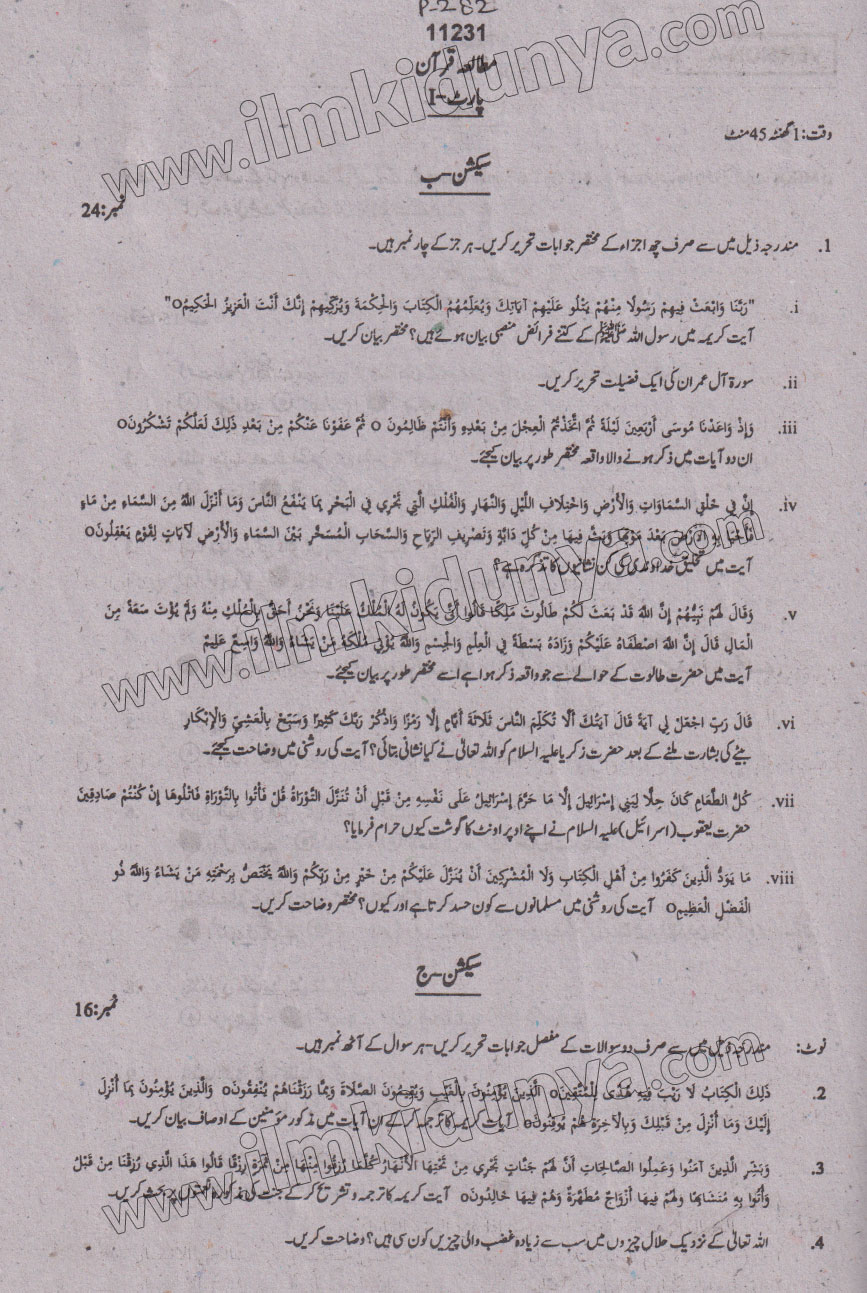 P-282
11231
مطالعہ قرآن
پارٹ-I
وقت: 1 گھنٹہ 45 منٹ
سیکشن-ب
نمبر: 24
1. مندرجہ ذیل میں سے صرف چھ اجزاء کے مختصر جوابات تحریر کریں۔ ہر جز کے چار نمبر ہیں۔
i. "رَبَّنَا وَابْعَثْ فِيهِمْ رَسُولًا مِنْهُمْ يَتْلُو عَلَيْهِمْ آيَاتِكَ وَيُعَلِّمُهُمُ الْكِتَابَ وَالْحِكْمَةَ وَيُزَكِّيهِمْ إِنَّكَ أَنْتَ الْعَزِيزُ الْحَكِيمُo"
آیت کریمہ میں رسول اللہ ﷺ کے کتنے فرائض منصبی بیان ہوئے ہیں؟ مختصر بیان کریں۔
ii. سورۃ آل عمران کی ایک فضیلت تحریر کریں۔
iii. وَإِذْ وَاعَدْنَا مُوسَى أَرْبَعِينَ لَيْلَةً ثُمَّ اتَّخَذْتُمُ الْعِجْلَ مِنْ بَعْدِهِ وَأَنْتُمْ ظَالِمُونَ o ثُمَّ عَفَوْنَا عَنْكُمْ مِنْ بَعْدِ ذَلِكَ لَعَلَّكُمْ تَشْكُرُونَo
ان دو آیات میں ذکر ہونے والا واقعہ مختصر طور پر بیان کیجئے۔
iv. إِنَّ فِي خَلْقِ السَّمَاوَاتِ وَالْأَرْضِ وَاخْتِلَافِ اللَّيْلِ وَالنَّهَارِ وَالْفُلْكِ الَّتِي تَجْرِي فِي الْبَحْرِ بِمَا يَنْفَعُ النَّاسَ وَمَا أَنْزَلَ اللَّهُ مِنَ السَّمَاءِ مِنْ مَاءٍ
فَأَحْيَا بِهِ الْأَرْضَ بَعْدَ مَوْتِهَا وَبَثَّ فِيهَا مِنْ كُلِّ دَابَّةٍ وَتَصْرِيفِ الرِّيَاحِ وَالسَّحَابِ الْمُسَخَّرِ بَيْنَ السَّمَاءِ وَالْأَرْضِ لَآيَاتٍ لِقَوْمٍ يَعْقِلُونَo
آیت میں تخلیق خداوندی کی کن نشانیوں کا تذکرہ ہے؟
v. وَقَالَ لَهُمْ نَبِيُّهُمْ إِنَّ اللَّهَ قَدْ بَعَثَ لَكُمْ طَالُوتَ مَلِكًا قَالُوا أَنَّى يَكُونُ لَهُ الْمُلْكُ عَلَيْنَا وَنَحْنُ أَحَقُّ بِالْمُلْكِ مِنْهُ وَلَمْ يُؤْتَ سَعَةً مِنَ
الْمَالِ قَالَ إِنَّ اللَّهَ اصْطَفَاهُ عَلَيْكُمْ وَزَادَهُ بَسْطَةً فِي الْعِلْمِ وَالْجِسْمِ وَاللَّهُ يُؤْتِي مُلْكَهُ مَنْ يَشَاءُ وَاللَّهُ وَاسِعٌ عَلِيمٌ
آیت میں حضرت طالوت کے حوالے سے جو واقعہ ذکر ہوا ہے اسے مختصر طور پر بیان کیجئے۔
vi. قَالَ رَبِّ اجْعَلْ لِي آيَةً قَالَ آيَتُكَ أَلَّا تُكَلِّمَ النَّاسَ ثَلَاثَةَ أَيَّامٍ إِلَّا رَمْزًا وَاذْكُرْ رَبَّكَ كَثِيرًا وَسَبِّحْ بِالْعَشِيِّ وَالْإِبْكَارِ
بیٹے کی بشارت ملنے کے بعد حضرت زکریا علیہ السلام کو اللہ تعالیٰ نے کیا نشانی بتائی؟ آیت کی روشنی میں وضاحت کیجئے۔
vii. كُلُّ الطَّعَامِ كَانَ حِلًّا لِبَنِي إِسْرَائِيلَ إِلَّا مَا حَرَّمَ إِسْرَائِيلُ عَلَى نَفْسِهِ مِنْ قَبْلِ أَنْ تُنَزَّلَ التَّوْرَاةُ قُلْ فَأْتُوا بِالتَّوْرَاةِ فَاتْلُوهَا إِنْ كُنْتُمْ صَادِقِينَ
حضرت یعقوب (اسرائیل) علیہ السلام نے اپنے اوپر اونٹ کا گوشت کیوں حرام فرمایا؟
viii. مَا يَوَدُّ الَّذِينَ كَفَرُوا مِنْ أَهْلِ الْكِتَابِ وَلَا الْمُشْرِكِينَ أَنْ يُنَزَّلَ عَلَيْكُمْ مِنْ خَيْرٍ مِنْ رَبِّكُمْ وَاللَّهُ يَخْتَصُّ بِرَحْمَتِهِ مَنْ يَشَاءُ وَاللَّهُ ذُو
الْفَضْلِ الْعَظِيمِo آیت کی روشنی میں مسلمانوں سے کون حسد کرتا ہے اور کیوں؟ مختصر وضاحت کریں۔
سیکشن-ج
نمبر: 16
نوٹ: مندرجہ ذیل میں سے صرف دو سوالات کے مفصل جوابات تحریر کریں۔ ہر سوال کے آٹھ نمبر ہیں۔
2. ذَلِكَ الْكِتَابُ لَا رَيْبَ فِيهِ هُدًى لِلْمُتَّقِينَo الَّذِينَ يُؤْمِنُونَ بِالْغَيْبِ وَيُقِيمُونَ الصَّلَاةَ وَمِمَّا رَزَقْنَاهُمْ يُنْفِقُونَo وَالَّذِينَ يُؤْمِنُونَ بِمَا أُنْزِلَ
إِلَيْكَ وَمَا أُنْزِلَ مِنْ قَبْلِكَ وَبِالْآخِرَةِ هُمْ يُوقِنُونَo آیات کریمہ کا ترجمہ کر کے ان آیات میں مذکور مؤمنین کے اوصاف بیان کریں۔
3. وَبَشِّرِ الَّذِينَ آمَنُوا وَعَمِلُوا الصَّالِحَاتِ أَنَّ لَهُمْ جَنَّاتٍ تَجْرِي مِنْ تَحْتِهَا الْأَنْهَارُ كُلَّمَا رُزِقُوا مِنْهَا مِنْ ثَمَرَةٍ رِزْقًا قَالُوا هَذَا الَّذِي رُزِقْنَا مِنْ قَبْلُ
وَأُتُوا بِهِ مُتَشَابِهًا وَلَهُمْ فِيهَا أَزْوَاجٌ مُطَهَّرَةٌ وَهُمْ فِيهَا خَالِدُونَo آیت کریمہ کا ترجمہ و تشریح کر کے جنت کی مذکورہ نعمتوں پر بحث کریں۔
4. اللہ تعالیٰ کے نزدیک حلال چیزوں میں سب سے زیادہ غضب والی چیزیں کون سی ہیں؟ وضاحت کریں۔
www.ilmkidunya.com
www.ilmkidunya.com
www.ilmkidunya.com